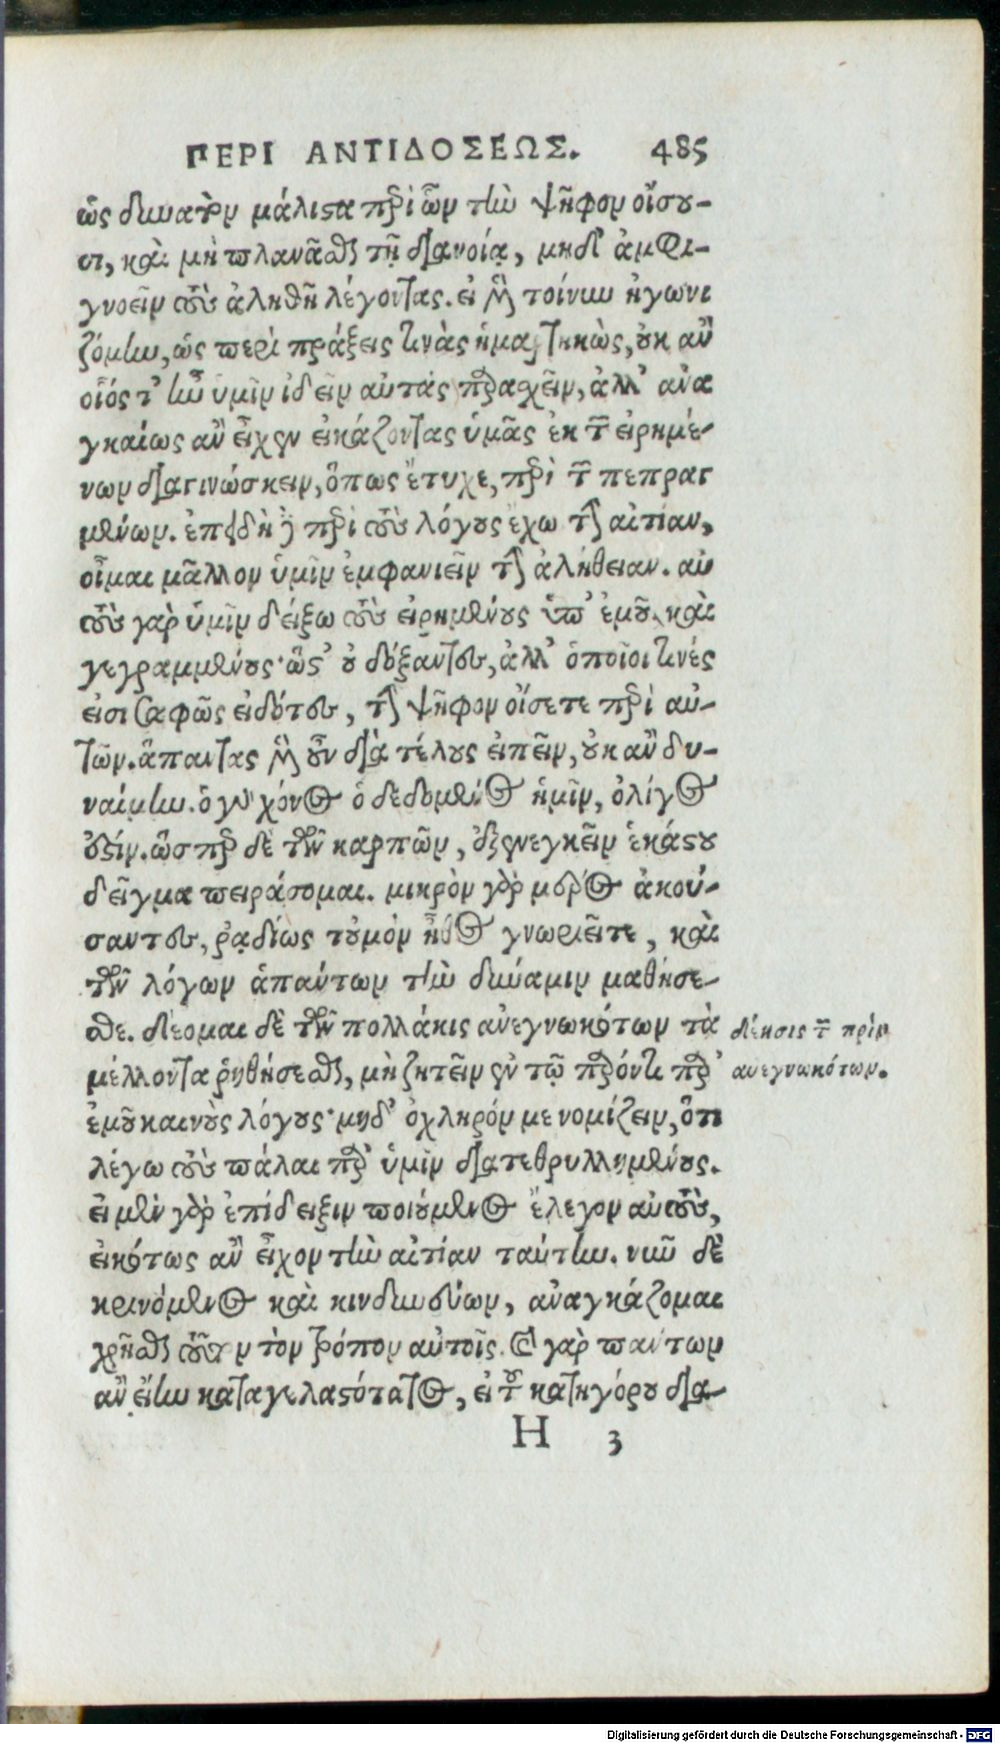 ΠΕΡΙ ΑΝΤΙΔΟΣΕΩΣ. 485
ὡς δυνατὸν μάλιστα περὶ ὧν τὴν ψῆφον οἴσου-
σι, καὶ μὴ πλανᾶσθαι τῇ διανοίᾳ, μηδ' ἀμφι-
γνοεῖν τοὺς ἀληθῆ λέγοντας. εἰ μὲν τοίνυν ἠγωνι
ζόμην, ὡς περὶ πράξεις τινὰς ἡμαρτηκὼς, οὐκ ἂν
οἷός τ' ἦν ὑμῖν ἰδεῖν αὐτὰς παρασχεῖν, ἀλλ' ἀνα
γκαίως ἂν εἶχεν εἰκάζοντας ὑμᾶς ἐκ τῶν εἰρημέ-
νων διαγινώσκειν, ὅπως ἔτυχε, περὶ τῶν πεπραγ
μένων. ἐπειδὴ δὲ περὶ τοὺς λόγους ἔχω τὴν αἰτίαν,
οἶμαι μᾶλλον ὑμῖν ἐμφανιεῖν τὴν ἀλήθειαν. αὐ
τοὺς γὰρ ὑμῖν δείξω τοὺς εἰρημένους ὑπ' ἐμοῦ καὶ
γεγραμμένους· ὥστ' οὐ δόξαντες, ἀλλ' ὁποῖοι τινές
εἰσι σαφῶς εἰδότες, τὴν ψῆφον οἴσετε περὶ αὐ-
τῶν. ἅπαντας μὲν οὖν διὰ τέλους εἰπεῖν, οὐκ ἂν δυ-
ναίμην. ὁ γὰρ χρόνος ὁ δεδομένος ἡμῖν, ὀλίγος
ἐστίν. ὥσπερ δὲ τῶν καρπῶν, ἐξενεγκεῖν ἑκάστου
δεῖγμα πειράσομαι. μικρὸν γὰρ μέρος ἀκού-
σαντες, ῥᾳδίως τοὐμὸν ἦθος γνωριεῖτε, καὶ
τῶν λόγων ἁπάντων τὴν δύναμιν μαθήσε-
σθε. δέομαι δὲ τῶν πολλάκις ἀνεγνωκότων τὰ
μέλλοντα ῥηθήσεσθαι, μὴ ζητεῖν ἐν τῷ παρόντι παρ'
ἐμοῦ καινοὺς λόγους· μηδ' ὀχληρόν με νομίζειν, ὅτι
λέγω τοὺς πάλαι παρ' ὑμῖν διατεθρυλλημένους.
εἰ μὲν γὰρ ἐπίδειξιν ποιούμενος ἔλεγον αὐτοὺς,
εἰκότως ἂν εἶχον τὴν αἰτίαν ταύτην. νῦν δὲ
κρινόμενος καὶ κινδυνεύων, ἀναγκάζομαι
χρῆσθαι τοῦτον τὸν τρόπον αὐτοῖς. καὶ γὰρ πάντων
ἂν εἴην καταγελαστότατος, εἰ τοῦ κατηγόρου δια-
H 3
δέησις τῶν πρὶν
ἀνεγνωκότων.
Digitalisierung gefördert durch die Deutsche Forschungsgemeinschaft - DFG